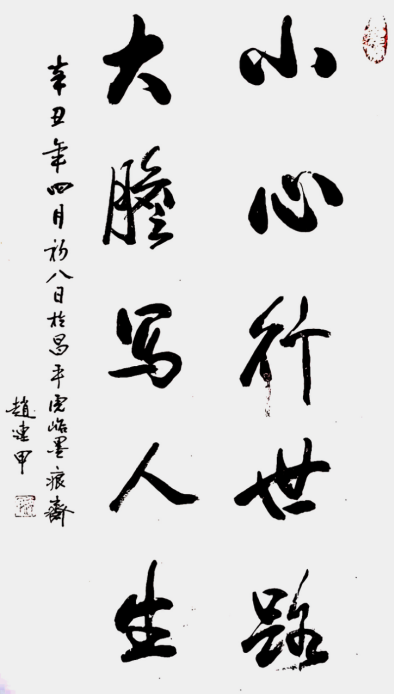 小心行世路
大膽写人生
辛丑年四月初八日於昌平虎峪墨痕齋
趙建甲